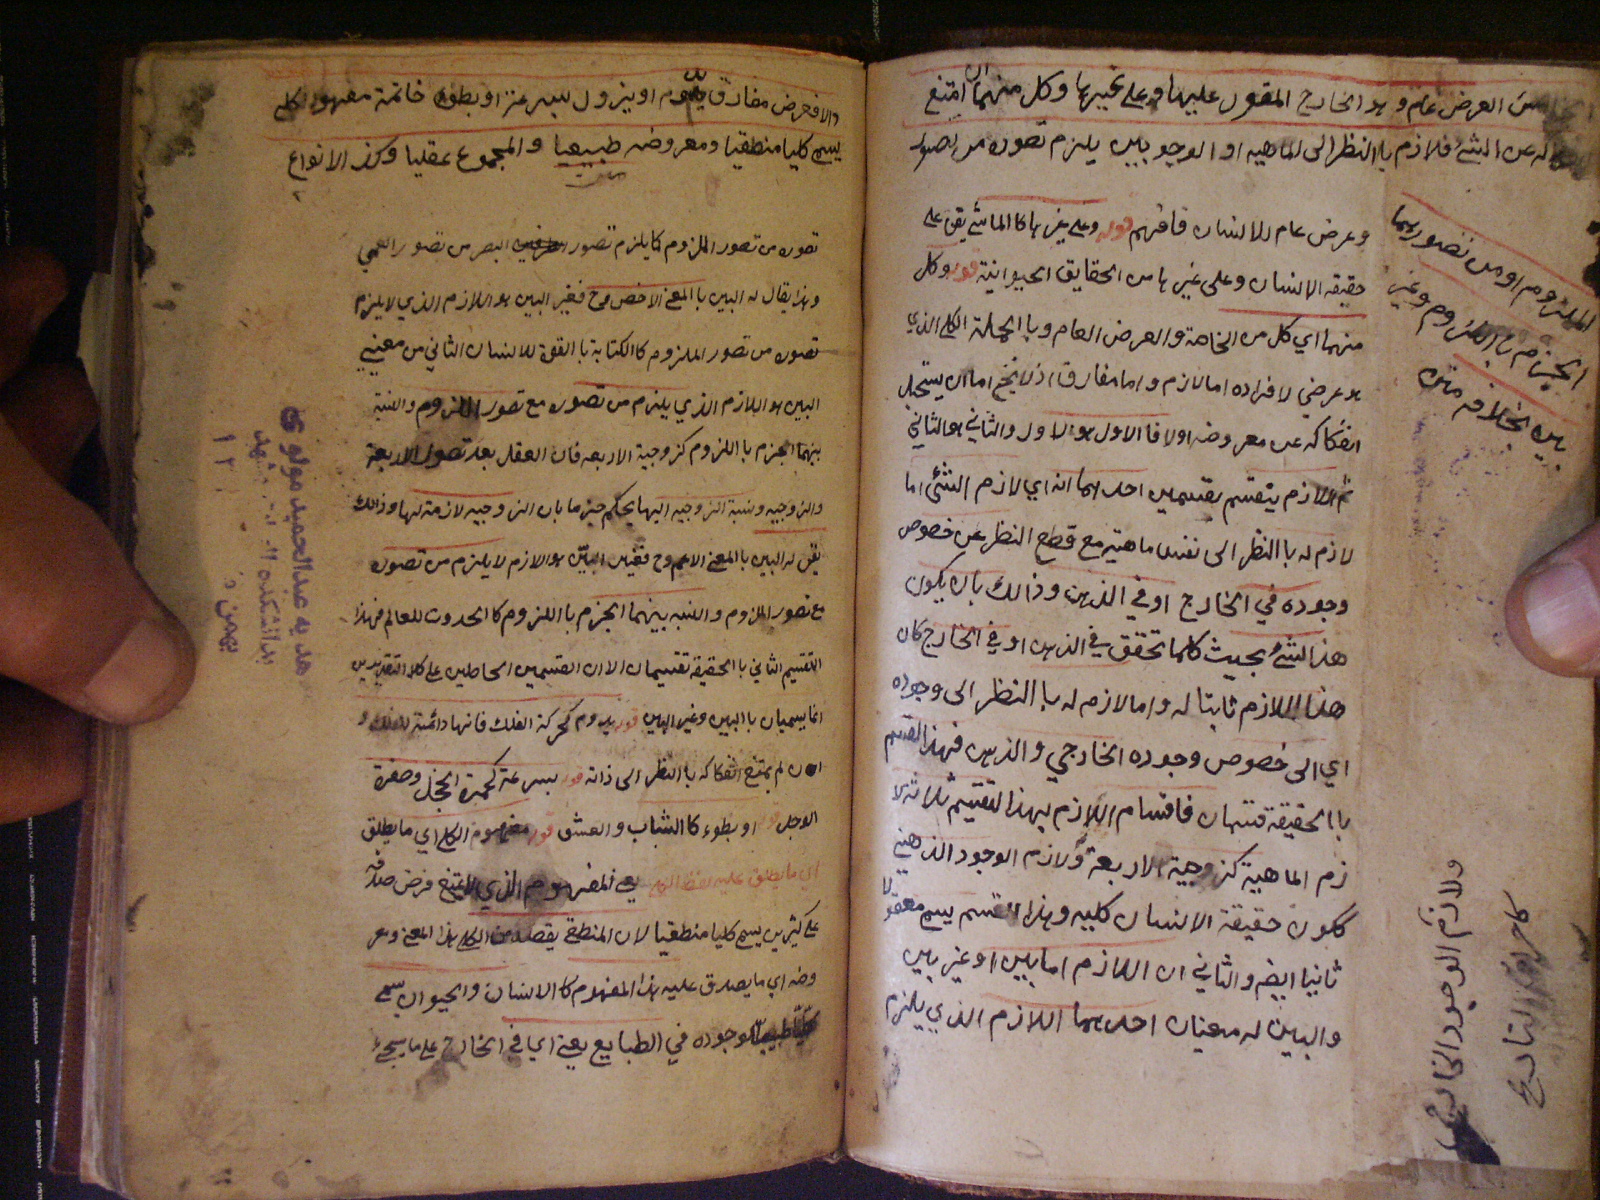 الخامس العرض العام وهو الخارج المقول عليها وعلى غيرها وكل منهما ان امتنع
انفكاكه عن الشئ فلازم باالنظر الى الماهيه او الوجود بين يلزم تصوره من تصور
الملزوم او من تصورهما
الجزم باللزوم وغير
بين بخلافه متن
وعرض عام للانسان فافهم قوله وعلى غيرها كالماشي يق على
حقيقة الانسان وعلى غيرها من الحقايق الحيوانية قوله وكل
منهما اي كل من الخاصة والعرض العام وباالجملة الكلي الذي
هو عرضي لافراده اما لازم واما مفارق اذ لا يخ اما ان يستحيل
انفكاكه عن معروضه اولا فالاول هو الاول والثاني هو الثاني
ثم اللازم ينقسم بقسمين احدهما انه اي لازم الشئ اما
لازم له باالنظر الى نفس ماهيته مع قطع النظر عن خصوص
وجوده في الخارج او في الذهن وذالك بان يكون
هذا الشئ بحيث كلما تحقق في الذهن او في الخارج كان
هذا اللازم ثابتا له واما لازم له باالنظر الى وجوده
اي الى خصوص وجوده الخارجي والذهن فهذا القسم
باالحقيقة قسمان فاقسام اللازم بهذا التقسيم ثلاثة لا
زم الماهية كزوجية الاربعة ولازم الوجود الذهني
ككون حقيقة الانسان كلية وهذا القسم يسمى معقولا
ثانيا ايضا والثاني ان اللازم اما بين او غير بين
والبين له معنيان احدهما اللازم الذي يلزم
ولازم الوجود الخارجي
كاحراق النار
والا فعرض مفارق يدوم او يزول بسرعة او بطوء خاتمة مفهوم الكلي
يسمى كليا منطقيا ومعروضه طبيعيا والمجموع عقليا وكذا الانواع
تصوره من تصور الملزوم كما يلزم تصور البصر من تصور العمي
وهذا يقال له البين باالمعنى الاخص وح فغير البين هو اللازم الذي لا يلزم
تصوره من تصور الملزوم كالكتابة باالقوة للانسان الثاني من معنيي
البين هو اللازم الذي يلزم من تصوره مع تصور الملزوم والنسبة
بينهما الجزم باللزوم كزوجية الاربعه فان العقل بعد تصور الاربعة
والزوجيه ونسبة الزوجيه اليها يحكم جزما بان الزوجيه لازمة لها وذالك
يقال له البين باالمعنى الاعم وح فغير البين هو اللازم لا يلزم من تصوره
مع تصور الملزوم والنسبه بينهما الجزم باللزوم كاالحدوث للعالم فهذا
التقسيم الثاني باالحقيقة تقسيمان الا ان القسمين الحاصلين على كلا التقديرين
انما يسميان باالبين وغير البين قوله يدوم كحركة الفلك فانها دائمة للفلك و
ان لم يمتنع انفكاكه باالنظر الى ذاته قوله بسرعة كحمرة الخجل وصفرة
الوجل قوله او بطوء كاالشباب والعشق قوله مفهوم الكلي اي ما يطلق
اي ما يطلق عليه لفظ الكلي يعني المفهوم الذي لا يمتنع فرض صدقه
على كثيرين يسمى كليا منطقيا لان المنطقي يقصد من الكلي هذا المعنى ومعر
وضه اي ما يصدق عليه هذا المفهوم كاالانسان والحيوان يسمى
كليا طبيعيا لوجوده في الطبايع يعني اي في الخارج على ما سيجئ
هديه عبدالحميد مولوی
بدانشکده
بهمن